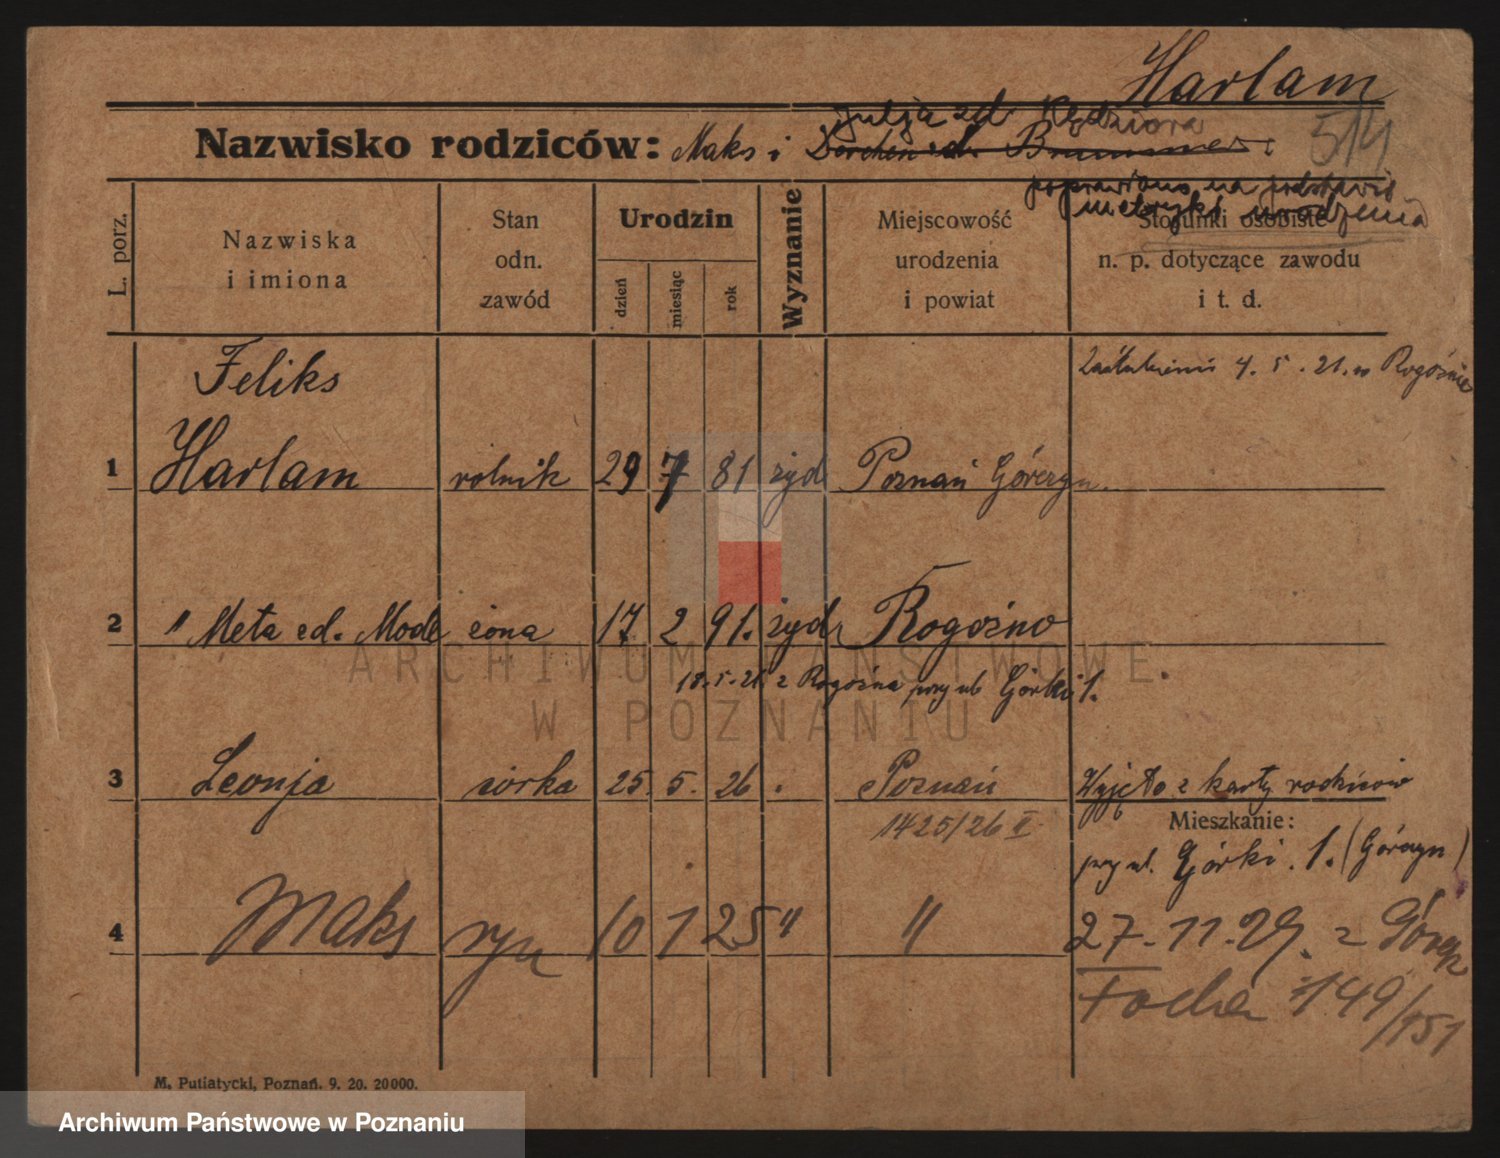 Harlam
514
Julja zd Kędziora
Nazwisko rodziców: Maks i Dorchen zd. Brummer
poprawiono na podstawie
metryki urodzenia
L. porz.
Nazwiska
i imiona
Stan
odn.
zawód
Urodzin
dzień
miesiąc
rok
Wyznanie
Miejscowość
urodzenia
i powiat
Stosunki osobiste
n. p. dotyczące zawodu
i t. d.
Feliks
4. 5. 21. w Rogoźnie
1 Harlam rolnik 29 7 81 żyd Poznań Górczyn.
2 " Meta zd. Mode żona 17 2 91. żyd Rogoźno
18.5.21. z Rogoźna przy ul Górki 1.
3 Leonja córka 25. 5. 26 . Poznań Wyjęto z karty rodziców
1425/26 II
Mieszkanie:
przy ul. Górki. 1. (Górczyn)
4 Maks syn 10 1 25 " " 27.11.29. z Górcz
Focha 149/151
M. Putiatycki, Poznań. 9. 20. 20000.
ARCHIWUM PAŃSTWOWE
W POZNANIU
Archiwum Państwowe w Poznaniu